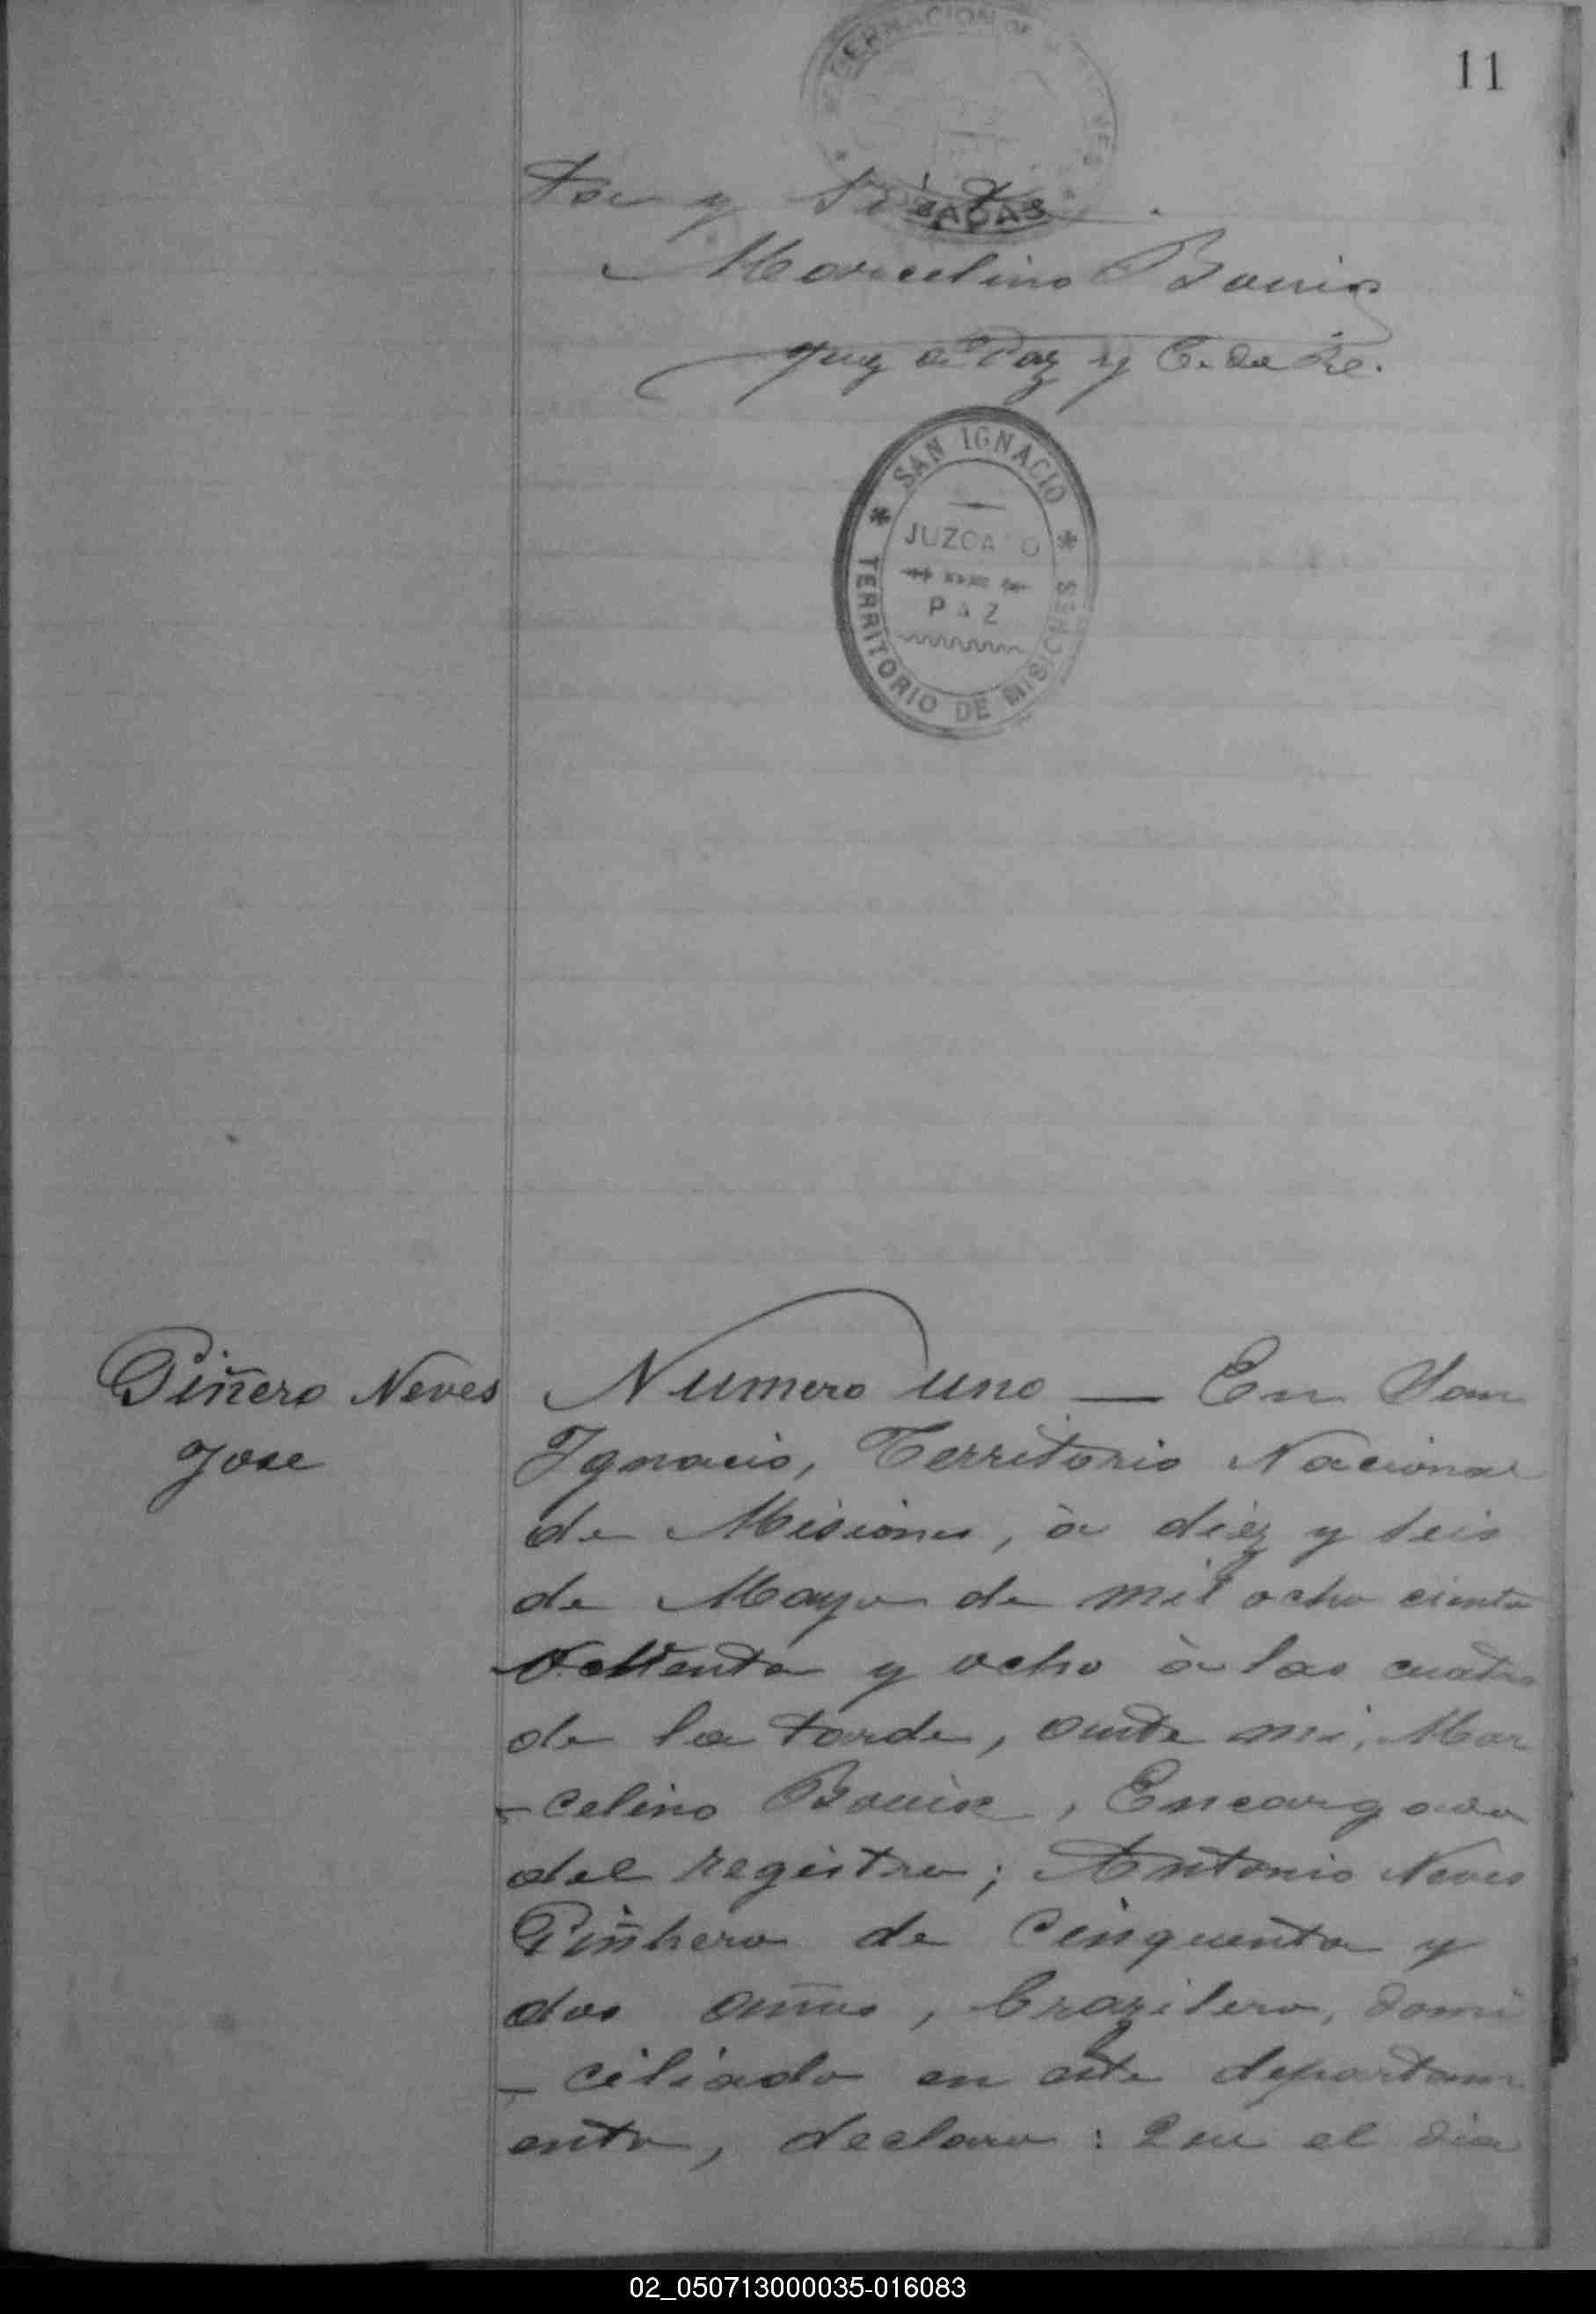 11
GOBERNACION DE MISIONES
POSADAS
Doy y
Marcelino Bouix
Juez de Paz y E. del Re.
SAN IGNACIO
JUZGADO
PAZ
TERRITORIO DE MISIONES
Piñero Neves
Jose
Numero uno — En San
Ignacio, Territorio Nacional
de Misiones, à diez y seis
de Mayo de mil ocho ciento
ochenta y ocho à las cuatro
de la tarde, ante mi, Mar
-celino Bouix, Encargado
del registro; Antonio Neves
Piñhero de Cinquenta y
dos años, brazilero, domi
-ciliado en este departam
ento, declaro: Que el dia
02_050713000035-016083